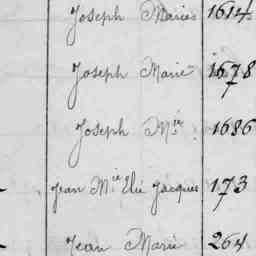 Joseph Marie 1614
Joseph Marie 1678
Joseph Mie 1686
Jean Mie Elie Jacques 173
Jean Marie 264